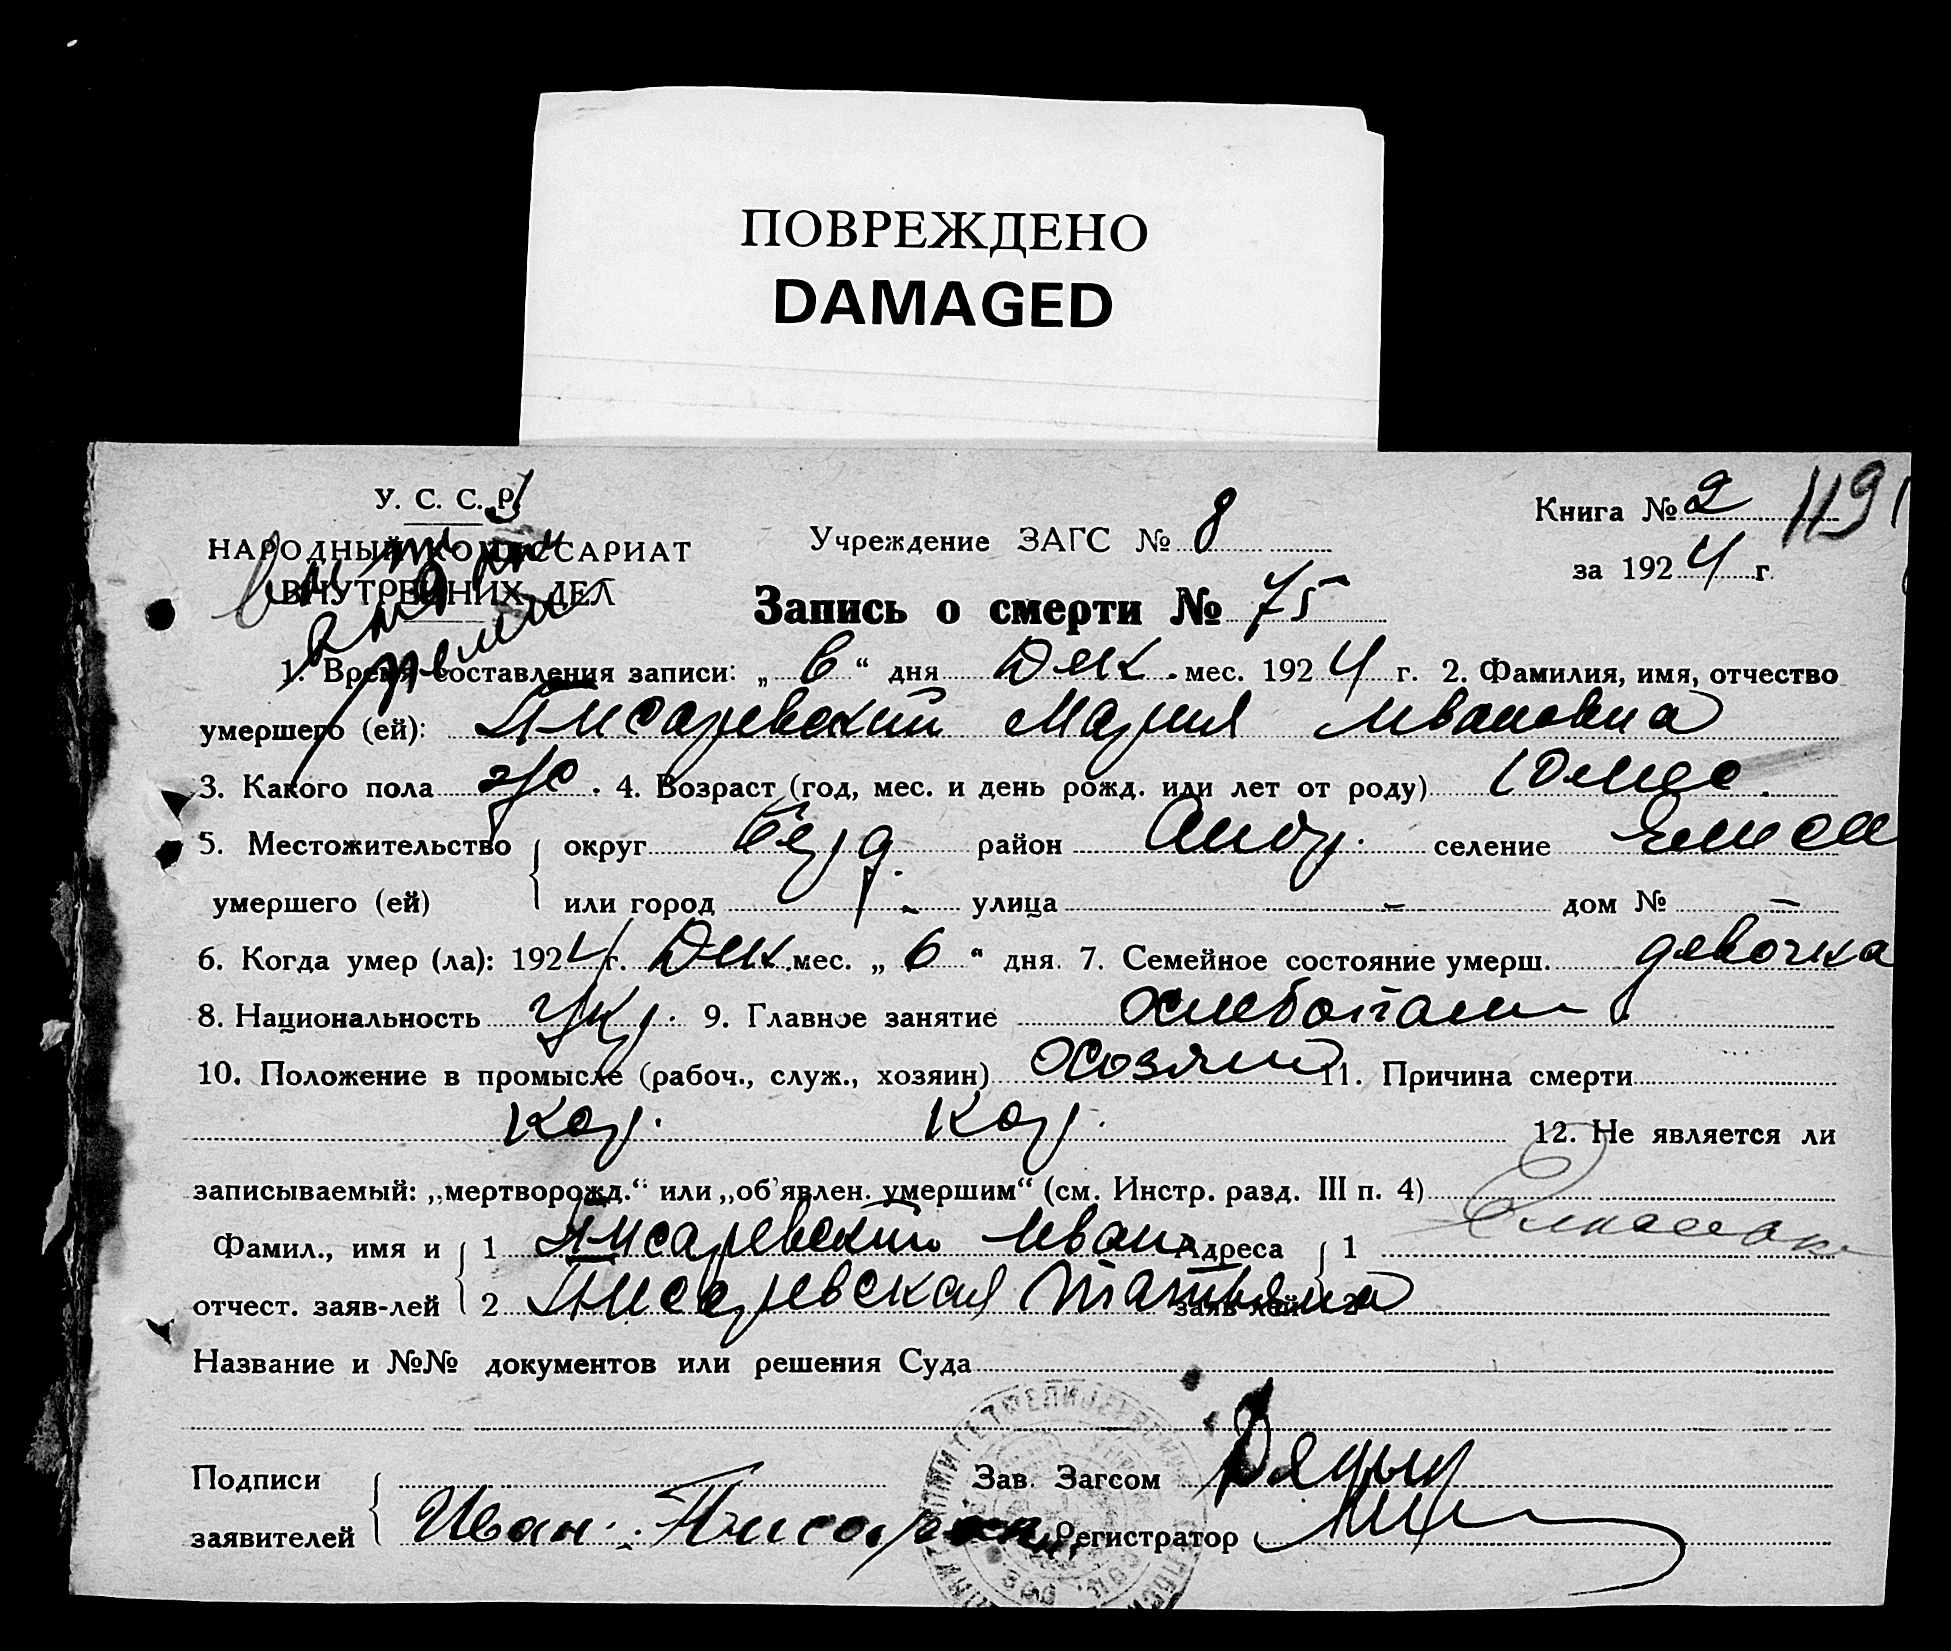 ПОВРЕЖДЕНО
DAMAGED
У. С. С. Р.
НАРОДНЫЙ КОМИССАРИАТ
ВНУТРЕННИХ ДЕЛ
Учреждение ЗАГС № 8
Книга № 2 119
за 1924 г.
Запись о смерти № 75
1. Время составления записи: „ 6 “ дня Дек. мес. 1924 г. 2. Фамилия, имя, отчество
умершего (ей): Писаревский Мария Ивановна
3. Какого пола ж. 4. Возраст (год, мес. и день рожд. или лет от роду) 10 мес.
5. Местожительство округ район селение
умершего (ей) или город - улица - дом № -
6. Когда умер (ла): 1924 г. Дек. мес. „ 6 “ дня. 7. Семейное состояние умерш. девочка
8. Национальность Укр. 9. Главное занятие
10. Положение в промысле (рабоч., служ., хозяин) хозяин 11. Причина смерти
Кор. Кор. 12. Не является ли
записываемый: „мертворожд.“ или „об'явлен. умершим“ (см. Инстр. разд. III п. 4)
Фамил., имя и 1 Писаревский Иван Адреса 1
отчест. заяв-лей 2 Писаревская Татьяна заяв-лей 2
Название и №№ документов или решения Суда
Подписи Зав. Загсом
заявителей Иван Регистратор